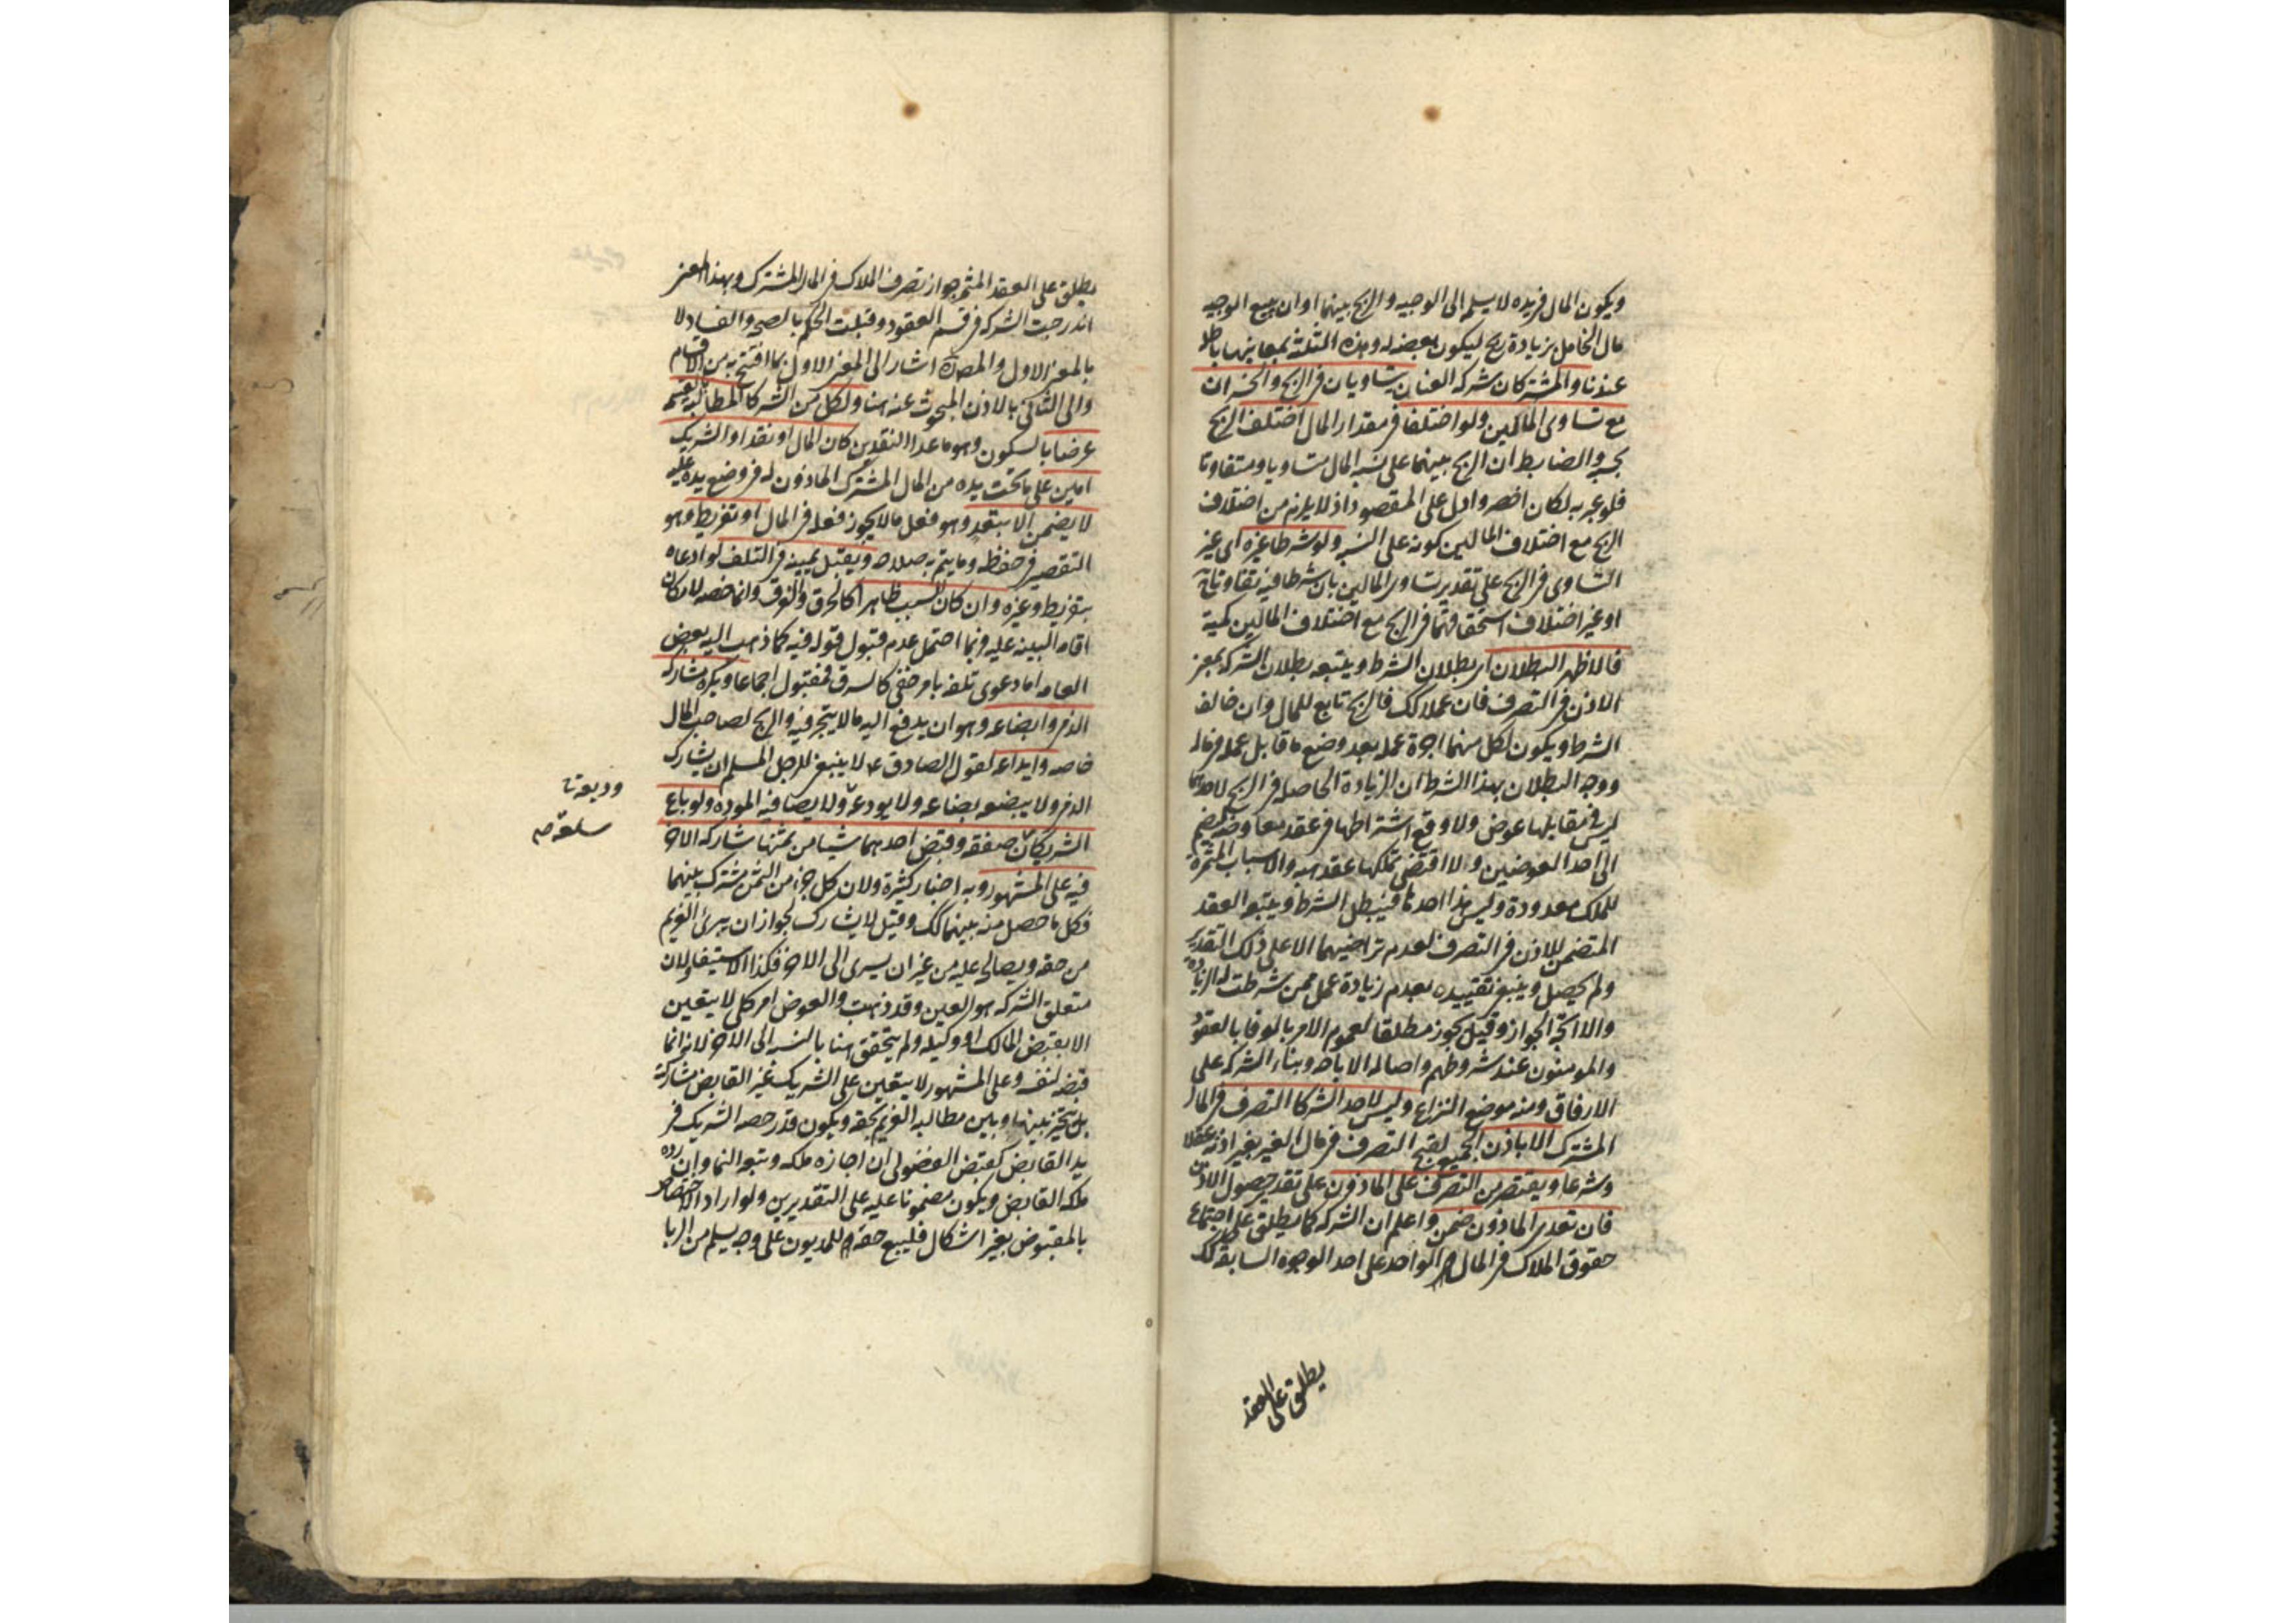 ويكون المال فى يده لا يسلم الى الوجيه والربح بينهما او ان يبيع الوجيه
مال الخامل بزيادة ربح ليكون بعضه له وهذه الثلثة بمعانيها باطلة
عندنا والمشتركان شركة العنان يتساويان فى الربح والخسران
مع تساوى المالين ولو اختلفا فى مقدار المال اختلف الربح
بحسبه والضابط ان الربح بينهما على نسبة المال متساويا ومتفاوتا
فلو عبر به لكان اخصر وادل على المقصود اذ لا يلزم من اختلاف
الربح مع اختلاف المالين كونه على النسبه ولو شرطا غيره اى غير
التساوى فى الربح على تقدير تساوى المالين بان شرطا فيه تفاوتا
او غير اختلاف استحقاقهما فى الربح مع اختلاف المالين كمية
فالاظهر البطلان اى بطلان الشرط ويتبعه بطلان الشركه بمعنى
الاذن فى التصرف فان عملا كك فالربح تابع للمال وان خالف
الشرط ويكون لكل منهما اجرة عمله بعد وضع ما قابل عمله فى ماله
ووجه البطلان بهذا الشرط ان الزيادة الحاصله فى الربح لاحدهما
ليس فى مقابلها عوض ولا وقع اشتراطها فى عقد معاوضه لتضم
الى احد العوضين ولا اقتضى تملكها عقد هبه والاسباب المثمرة
للملك معدودة وليس هذا احدها فيبطل الشرط ويتبعه العقد
المتضمن للاذن فى التصرف لعدم تراضيهما الا على ذلك التقدير
ولم يحصل وينبغى تقييده بعدم زيادة عمل ممن شرطت له الزيادة
والا اتجه الجواز وقيل يجوز مطلقا لعموم الامر بالوفا بالعقود
والمومنون عند شروطهم واصاله الاباحه وبناء الشركه على
الارفاق ومنه موضع النزاع وليس لاحد الشركا التصرف فى المال
المشترك الا باذن الجميع لقبح التصرف فى مال الغير بغير اذنه عقلا
وشرعا ويقتصر من التصرف على الماذون على تقدير حصول الاذن
فان تعدى الماذون ضمن واعلم ان الشركه كما يطلق على اجتماع
حقوق الملاك فى المال الواحد على احد الوجوه السابقه كك
يطلق على العقد
يطلق على العقد المثمر جواز تصرف الملاك فى المال المشترك وبهذا المعنى
اندرجت الشركه فى قسم العقود وقبلت الحكم بالصحه والفساد لا
بالمعنى الاول والمصنف اشار الى المعنى الاول بما افتتح به من الاقسام
والى الثانى بالاذن المبحوث عنه هنا ولكل من الشركا المطالبه بالقسمه
عرضا بالسكون وهو ما عدا النقدين كان المال او نقدا والشريك
امين على ما تحت يده من المال المشترك الماذون له فى وضع يده عليه
لا يضمن الا بتعد وهو فعل ما لا يجوز فعله فى المال او تفريط وهو
التقصير فى حفظه وما يتم به صلاحه ويقبل يمينه فى التلف لو ادعاه
بتفريط وغيره وان كان السبب ظاهرا كالحرق والغرق وانما خصه لامكان
اقامه البينه عليه فربما احتمل عدم قبول قوله فيه كما ذهب اليه بعض
العامه اما دعوى تلفه بامر خفى كالسرق فمقبول اجماعا ويكره مشاركه
الذمى وابضاعه وهو ان يدفع اليه مالا يتجر فيه والربح لصاحب المال
خاصه وايداعه لقول الصادق ع لا ينبغى للرجل المسلم ان يشارك
الذمى ولا يبضعه بضاعه ولا يودعه ولا يصافيه الموده ولو باع
الشريكان صفقه وقبض احدهما شيا من ثمنها شاركه الاخر
وديعة
سلعة صح
فيه على المشهور وبه اخبار كثيرة ولان كل جزء من الثمن مشترك بينهما
فكل ما حصل منه بينهما كك وقيل لا يشارك لجواز ان يبرئ الغريم
من حقه ويصالح عليه من غير ان يسرى الى الاخر فكذا الاستيفا ولان
متعلق الشركه هو العين وقد ذهبت والعوض امر كلى لا يتعين
الا بقبض المالك او وكيله ولم يتحقق هنا بالنسبه الى الاخر لانه انما
قبضه لنفسه وعلى المشهور لا يتعين على الشريك غير القابض مشاركة
بل يتخير بينها وبين مطالبه الغريم بحقه ويكون قدر حصه الشريك فى
يد القابض كقبض الفضولى ان اجازه ملكه وتبعه النما وان رده
ملكه القابض ويكون مضمونا عليه على التقديرين ولو اراد الاختصاص
بالمقبوض بغير اشكال فليبع حقه للمديون على وجه يسلم من الربا